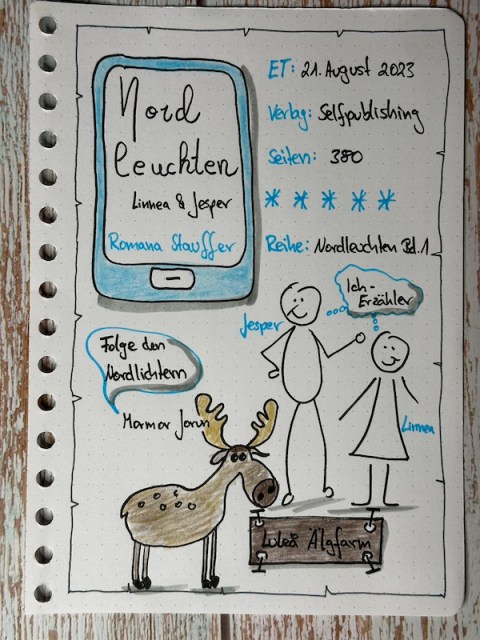 Nord
leuchten
Linnea & Jesper
Romana Stauffer
ET: 21. August 2023
Verlag: Selfpublishing
Seiten: 380
Reihe: Nordleuchten Bd. 1
Ich-
Erzähler
Jesper
Linnea
Folge den
Nordlichtern
Mormor Jorun
Luleå Älgfarm